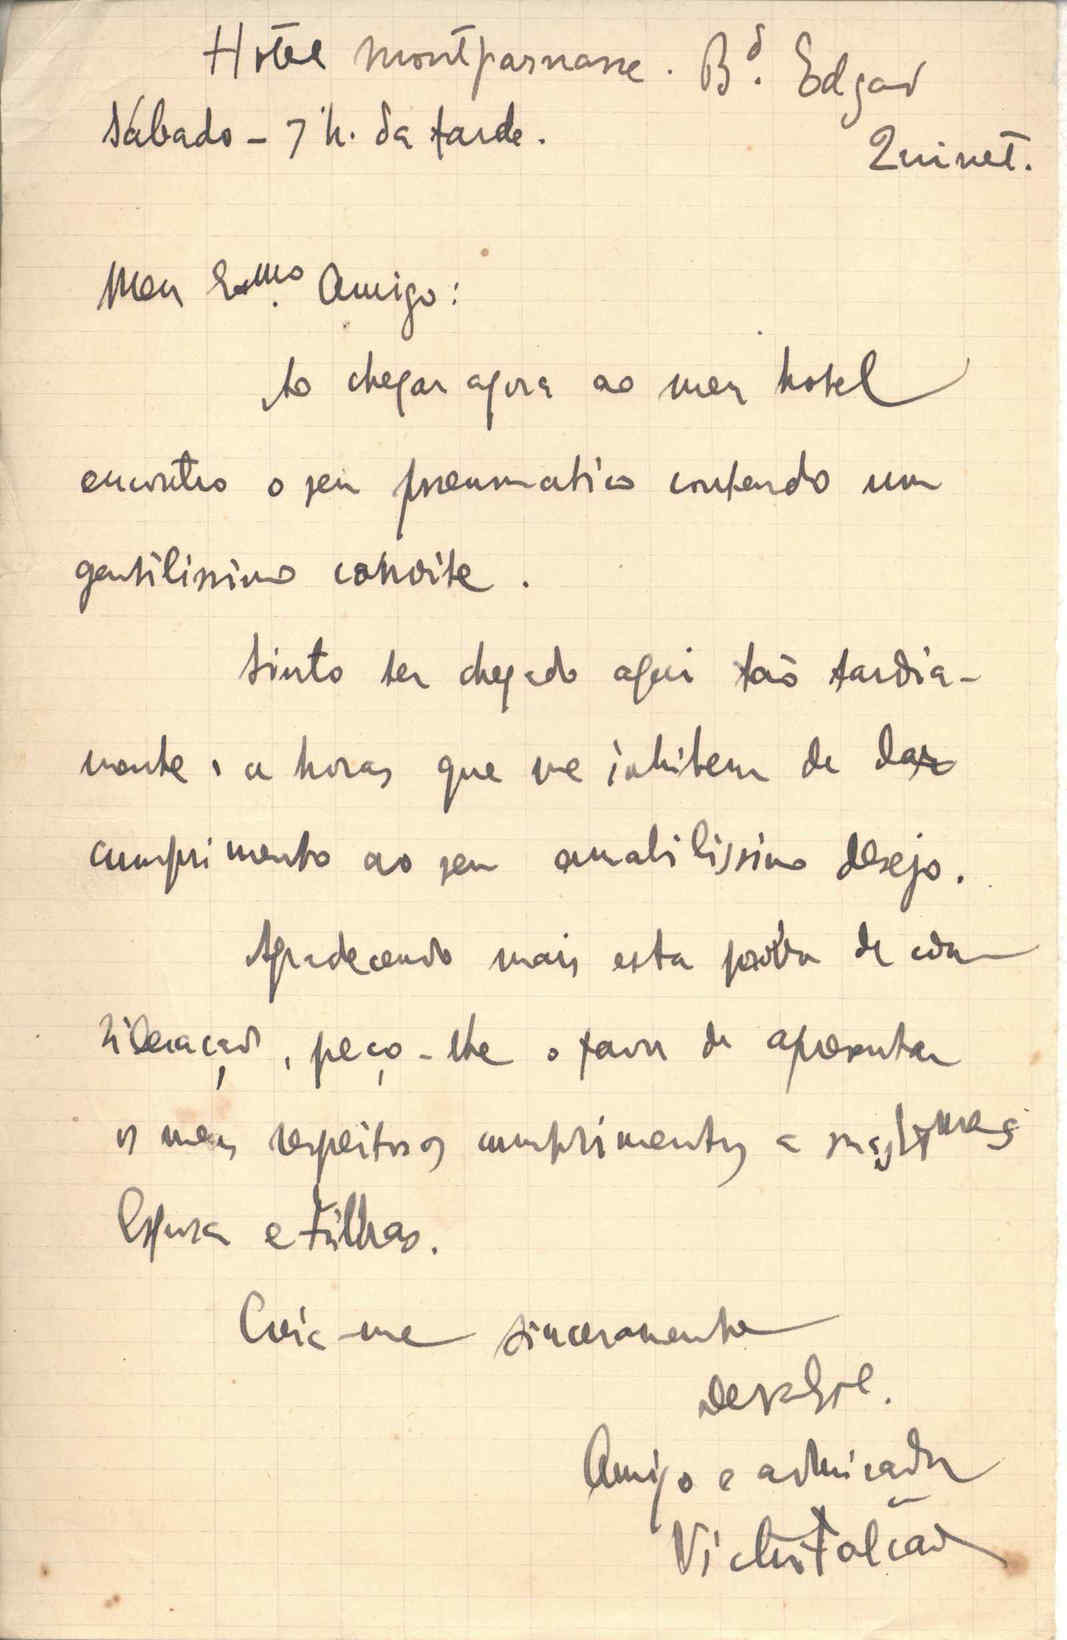 Hotel Montparnasse. Bd. Edgar
Quinet.
Sábado – 7 h. da tarde.
Meu Exmo. Amigo:
Ao chegar agora ao meu hotel
encontro o seu pneumatico contendo um
gentilissimo convite.
Sinto ter chegado aqui tão tardia-
mente, a horas que me inhibem de dar
cumprimento ao seu amabilissimo desejo.
Agradecendo mais esta próva de con
sideração, peço-lhe o favor de apresentar
os meus respeitosos cumprimentos a
Esposa e Filhas.
Creia-me sinceramente
de V. Exe.
Amigo e admirador
Victor Falcão